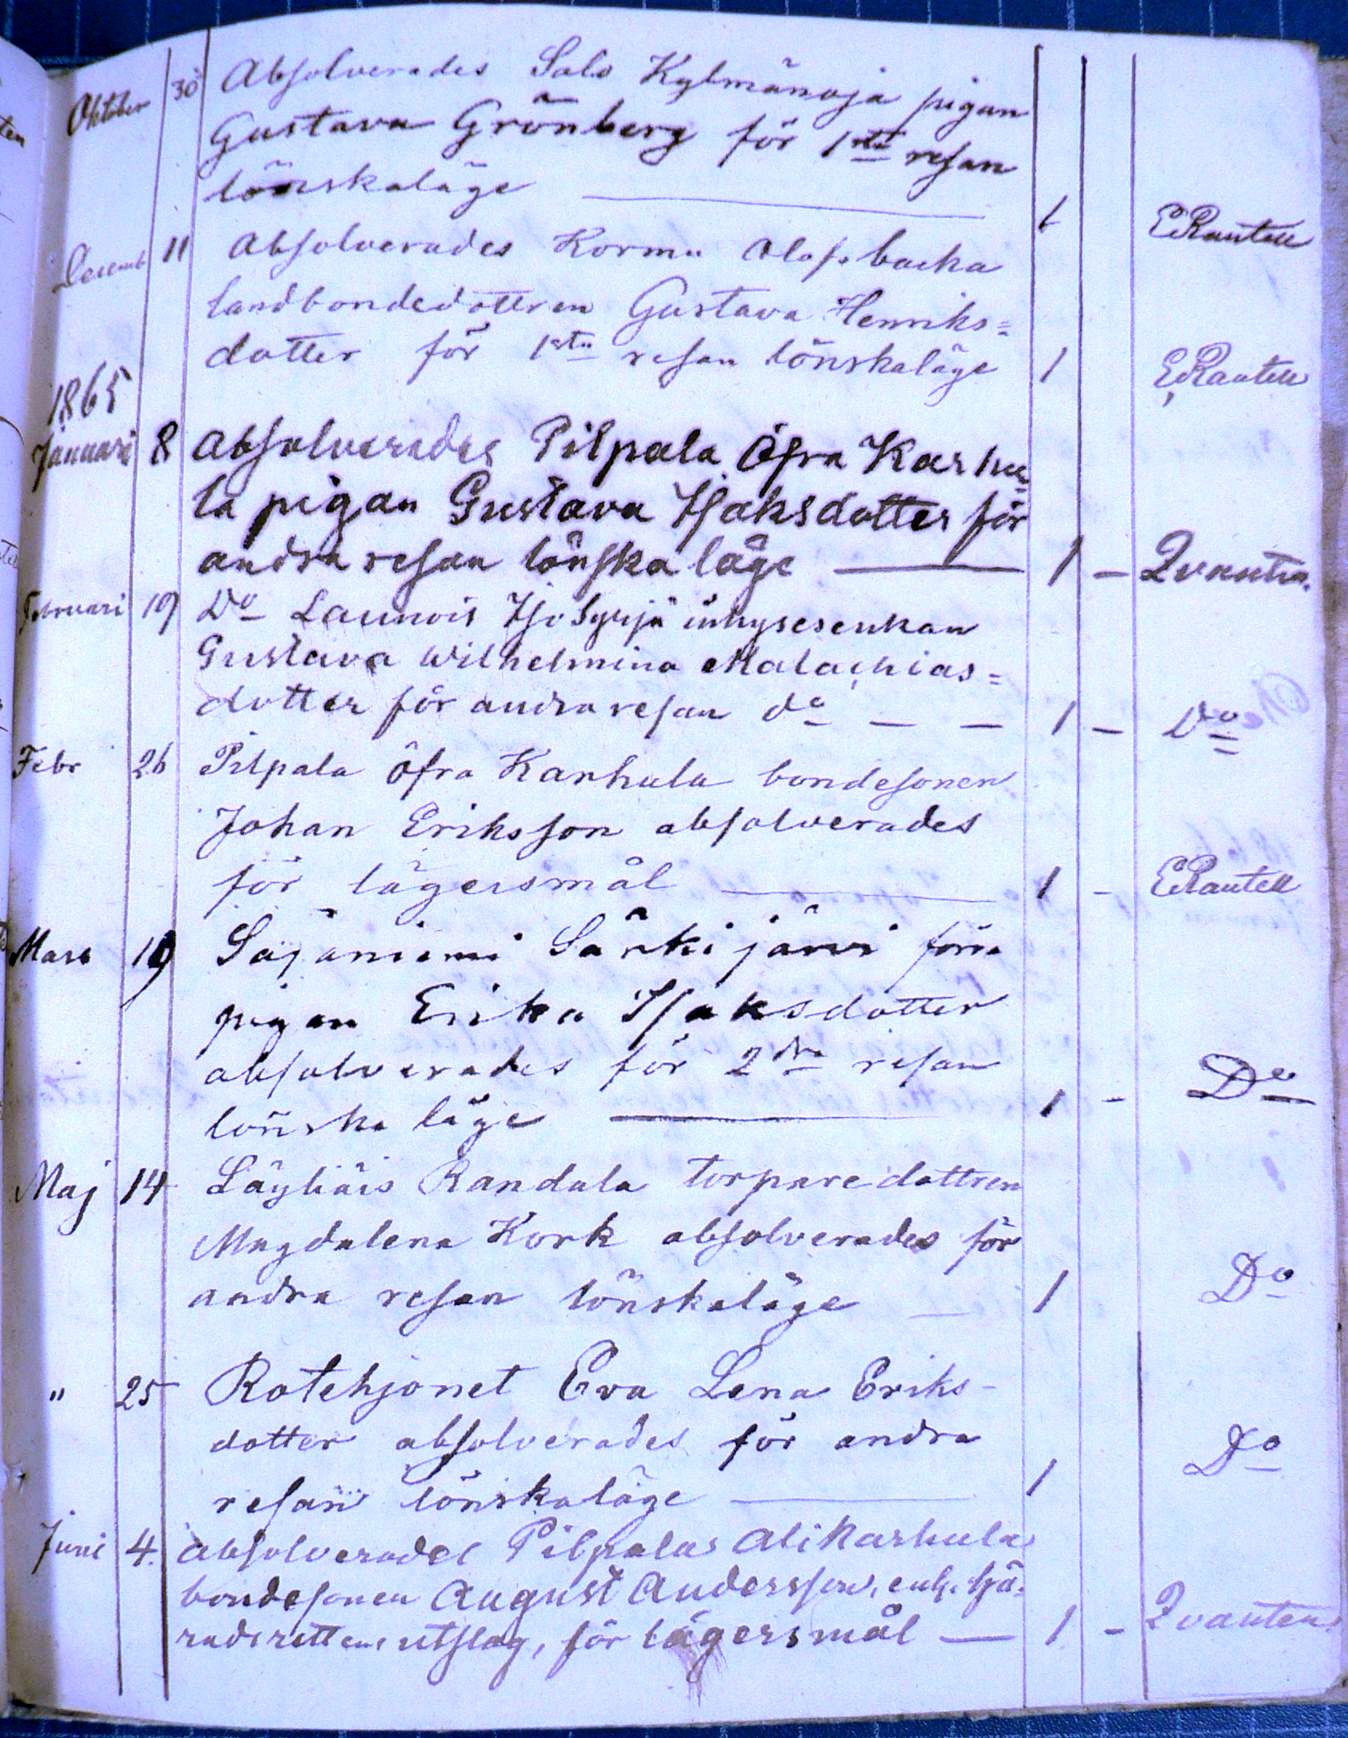 Oktober 30 Absolverades Salo Kylmänoja pigan
Gustava Grönberg för 1sta resan
lönskaläge 1 ERautell
Decemb 11 Absolverades Kormu Olofsbacka
landbondedottren Gustava Henriks=
dotter för 1sta resan lönskaläge 1 ERautell
1865
Januari 8 Absolverades Pilpala Öfra Karhu=
la pigan Gustava Isaksdotter för
andra resan lönska läge — 1 –
Februari 19 Do Launois Iso Syrjä inhysesenkan
Gustava Wilhelmina Malachias=
dotter för andra resan do — — 1 – Do
Febr 26 Pilpala Öfra Karhula bondesonen
Johan Eriksson absolverades
för lägersmål — 1 – ERautell
Mars 19 Sajaniemi Särkijärvi förra
pigan Erika Isaksdotter
absolverades för 2dra resan
lönska läge — 1 – Do
Maj 14 Läyliäis Randala torparedottren
Magdalena Kork absolverades för
andra resan lönskaläge — 1 Do
" 25 Rotehjonet Eva Lena Eriks-
dotter absolverades för andra
resan lönskaläge — 1 Do
Juni 4. Absolverades Pilpalas Alikarhula
bondesonen August Andersson, enl. hä-
radsrättens utslag, för lägersmål — 1 –